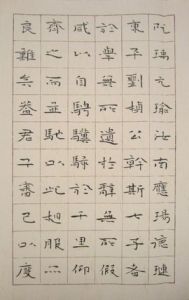 阮瑀元瑜汝南應瑒德璉
東平劉楨公幹斯七子者
於學無所遺於辭無所假
咸以自騁驥騄於千里仰
齊足而並馳以此相服亦
良難矣蓋君子審己以度